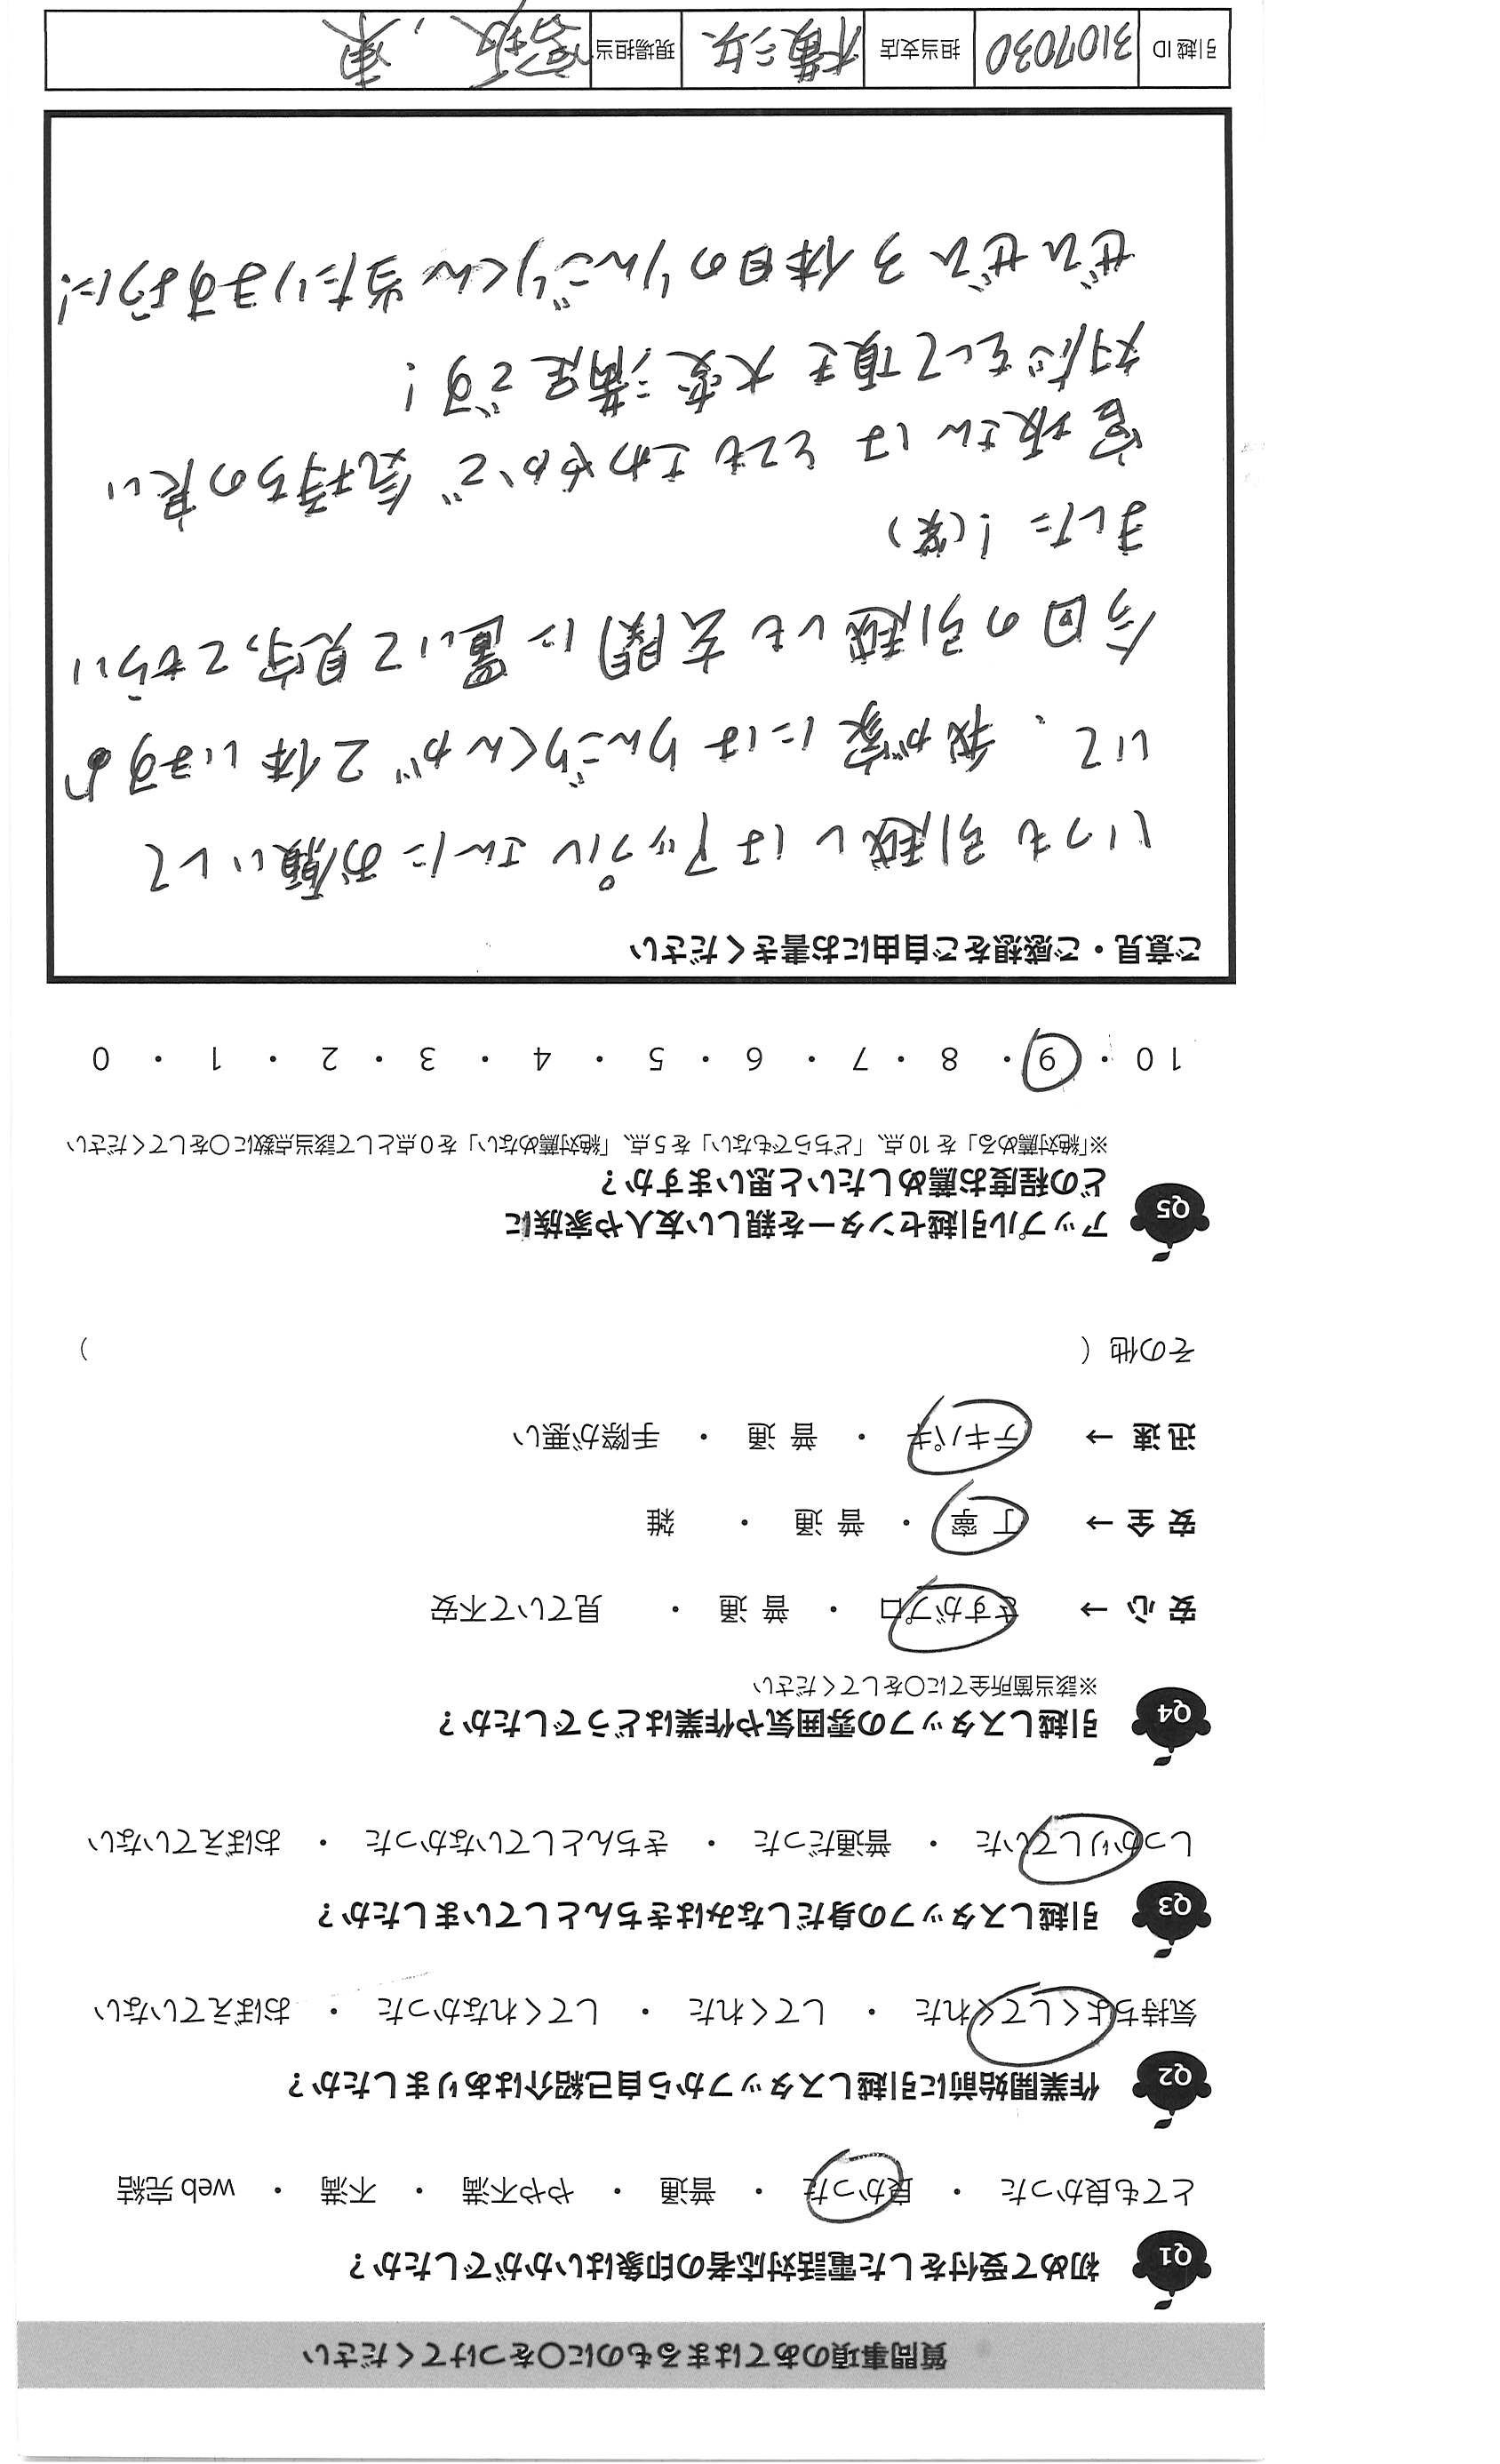 質問事項のあてはまるものに〇をつけてください
Q1 初めて受付をした電話対応者の印象はいかがでしたか？
とても良かった ・ 良かった ・ 普通 ・ やや不満 ・ 不満 ・ web 完結
Q2 作業開始前に引越しスタッフから自己紹介はありましたか？
気持ちよくしてくれた ・ してくれた ・ してくれなかった ・ おぼえていない
Q3 引越しスタッフの身だしなみはきちんとしていましたか？
しっかりしていた ・ 普通だった ・ きちんとしていなかった ・ おぼえていない
Q4 引越しスタッフの雰囲気や作業はどうでしたか？
※該当箇所全てに〇をしてください
安 心 → さすがプロ ・ 普 通 ・ 見ていて不安
安 全 → 丁 寧 ・ 普 通 ・ 雑
迅 速 → テキパキ ・ 普 通 ・ 手際が悪い
その他 （ ）
Q5 アップル引越センターを親しい友人や家族に
どの程度お薦めしたいと思いますか？
※「絶対薦める」を 10 点、「どちらでもない」を 5 点、「絶対薦めない」を 0 点として該当点数に〇をしてください
10 ・ 9 ・ 8 ・ 7 ・ 6 ・ 5 ・ 4 ・ 3 ・ 2 ・ 1 ・ 0
ご意見・ご感想をご自由にお書きください
いつも引越しはアップルさんにお願いして
いて、我が家にはりんごりくんが2体いますよ
今回の引越しも玄関に置いて見守ってもらい
ました！(笑)
宮坂さんはとてもさわやかで気持ちの良い
対応をして頂き大変満足です！
ぜひぜひ3体目のりんごりくん当たりますように！
引越ID 3107030 担当支店 横浜 現場担当 宮坂、東